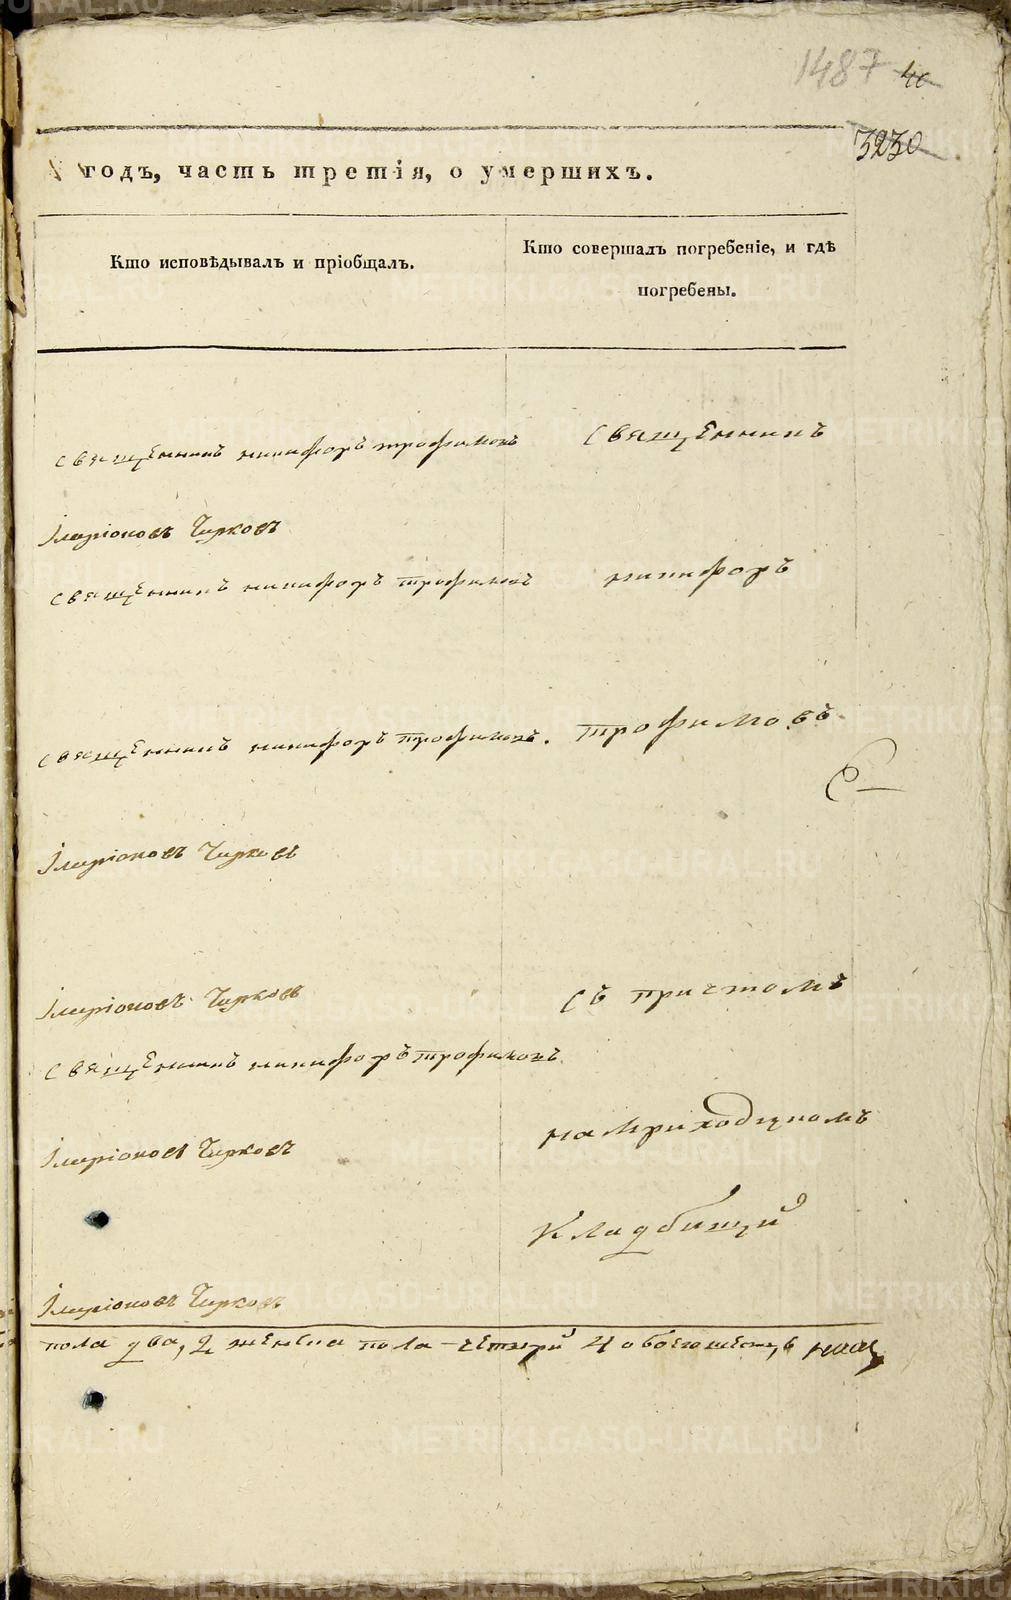 1487 40
3230
годъ, часть третія, о умершихъ.
Кто исповѣдывалъ и пріобщалъ.
Кто совершалъ погребеніе, и гдѣ
погребены.
священникъ никифоръ трофимовъ
священникъ
Іларіоновъ Чирковъ
священникъ никифоръ трофимовъ
никифоръ
священникъ никифоръ трофимовъ.
трофимовъ
Іларіоновъ Чирковъ
Іларіоновъ Чирковъ
съ причтомъ
священникъ никифоръ трофимовъ
на приходскомъ
Іларіоновъ Чирковъ
кладбищи
Іларіоновъ Чирковъ
пола два, 2 женска пола четыри 4 обоего шесть 6
METRIKI.GASO-URAL.RU